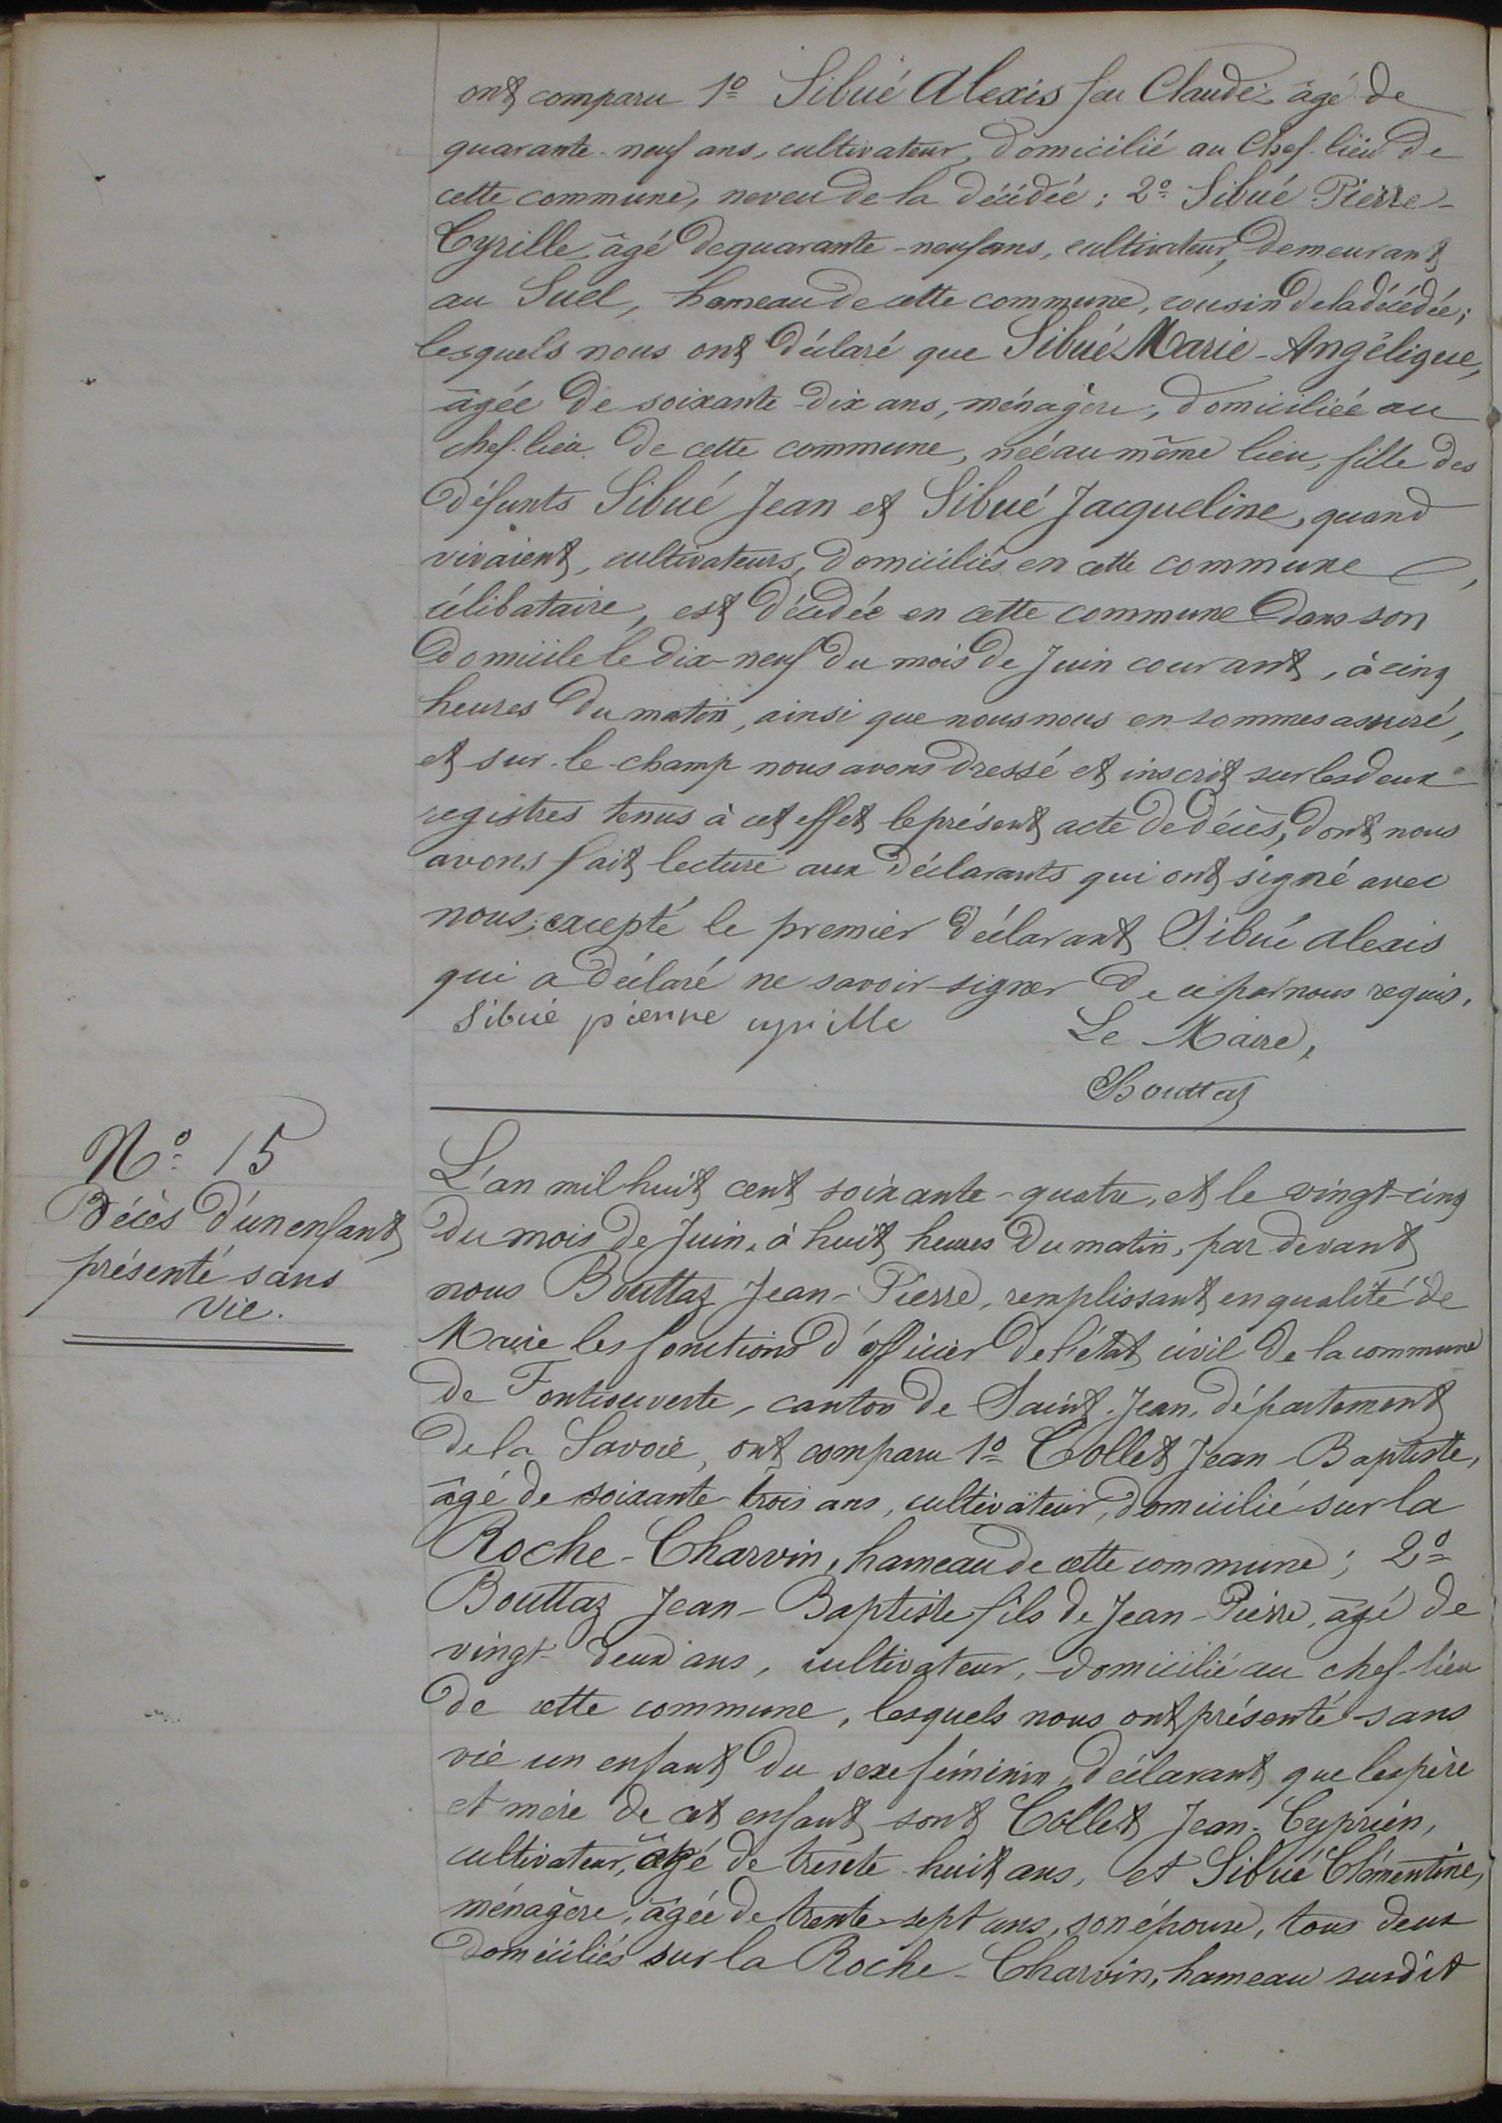 ont comparu 1º Sibué Alexis feu Claude âgé de
quarante-neuf ans, cultivateur, domicilié au Chef-lieu de
cette commune, neveu de la décédée; 2º Sibué Pierre-
Cyrille âgé de quarante-neuf ans, cultivateur, demeurant
au Suel, hameau de cette commune, cousin de la décédée;
lesquels nous ont déclaré que Sibué Marie-Angélique,
âgée de soixante-dix ans, ménagère, domiciliée au
chef-lieu de cette commune, née au même lieu, fille des
défunts Sibué Jean et Sibué Jacqueline, quand
vivaient, cultivateurs, domiciliés en cette commune,
célibataire, est décédée en cette commune dans son
domicile le dix-neuf du mois de Juin courant, à cinq
heures du matin, ainsi que nous nous en sommes assuré,
et sur-le-champ nous avons dressé et inscrit sur les deux
registres tenus à cet effet le présent acte de décès, dont nous
avons fait lecture aux déclarants qui ont signé avec
nous, excepté le premier déclarant Sibué Alexis
qui a déclaré ne savoir signer de ce par nous requis.
Sibué pierre cyrille Le Maire,
Bouttaz
Nº 15
Décès d'un enfant
présenté sans
vie.
L'an mil huit cent soixante-quatre, et le vingt-cinq
du mois de Juin, à huit heures du matin, par devant
nous Bouttaz Jean-Pierre, remplissant en qualité de
Maire les fonctions d'officier de l'état civil de la commune
de Fontcouverte, canton de Saint-Jean, département
de la Savoie, ont comparu 1º Collet Jean-Baptiste,
âgé de soixante-trois ans, cultivateur, domicilié sur la
Roche-Charvin, hameau de cette commune; 2º
Bouttaz Jean-Baptiste fils de Jean-Pierre, âgé de
vingt-deux ans, cultivateur, domicilié au chef-lieu
de cette commune, lesquels nous ont présenté sans
vie un enfant du sexe féminin, déclarant que les père
et mère de cet enfant sont Collet Jean-Cyprien,
cultivateur, âgé de trente-huit ans, et Sibué Clémentine,
ménagère, âgée de trente-sept ans, son épouse, tous deux
domiciliés sur la Roche-Charvin, hameau susdit